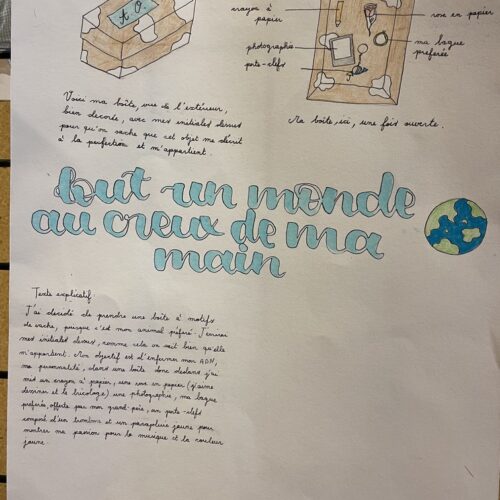 A O
crayon à
papier
rose en papier
photographie
ma bague
préférée
porte-clefs
Voici ma boîte, vue de l'extérieur,
bien decorée, avec mes initiales dessus
pour qu'on sache que cet objet me décrit
à la perfection et m'appartient.
Ma boîte, ici, une fois ouverte.
tout un monde
au creux de ma
main
Texte explicatif:
J'ai décidé de prendre une boîte à motifs
de vache, puisque c'est mon animal préféré. J'écrirai
mes initiales dessus, comme cela on sait bien qu'elle
m'appartient. Mon objectif est d'enfermer mon ADN,
ma personnalité, dans une boîte donc dedans j'ai
mis un crayon à papier, une rose en papier (j'aime
dessiner et le bricolage) une photographie, ma bague
préférée, offerte par mon grand-père, un porte-clefs
composé d'un et un parapluie jaune pour
montrer ma passion pour la musique et la couleur
jaune.